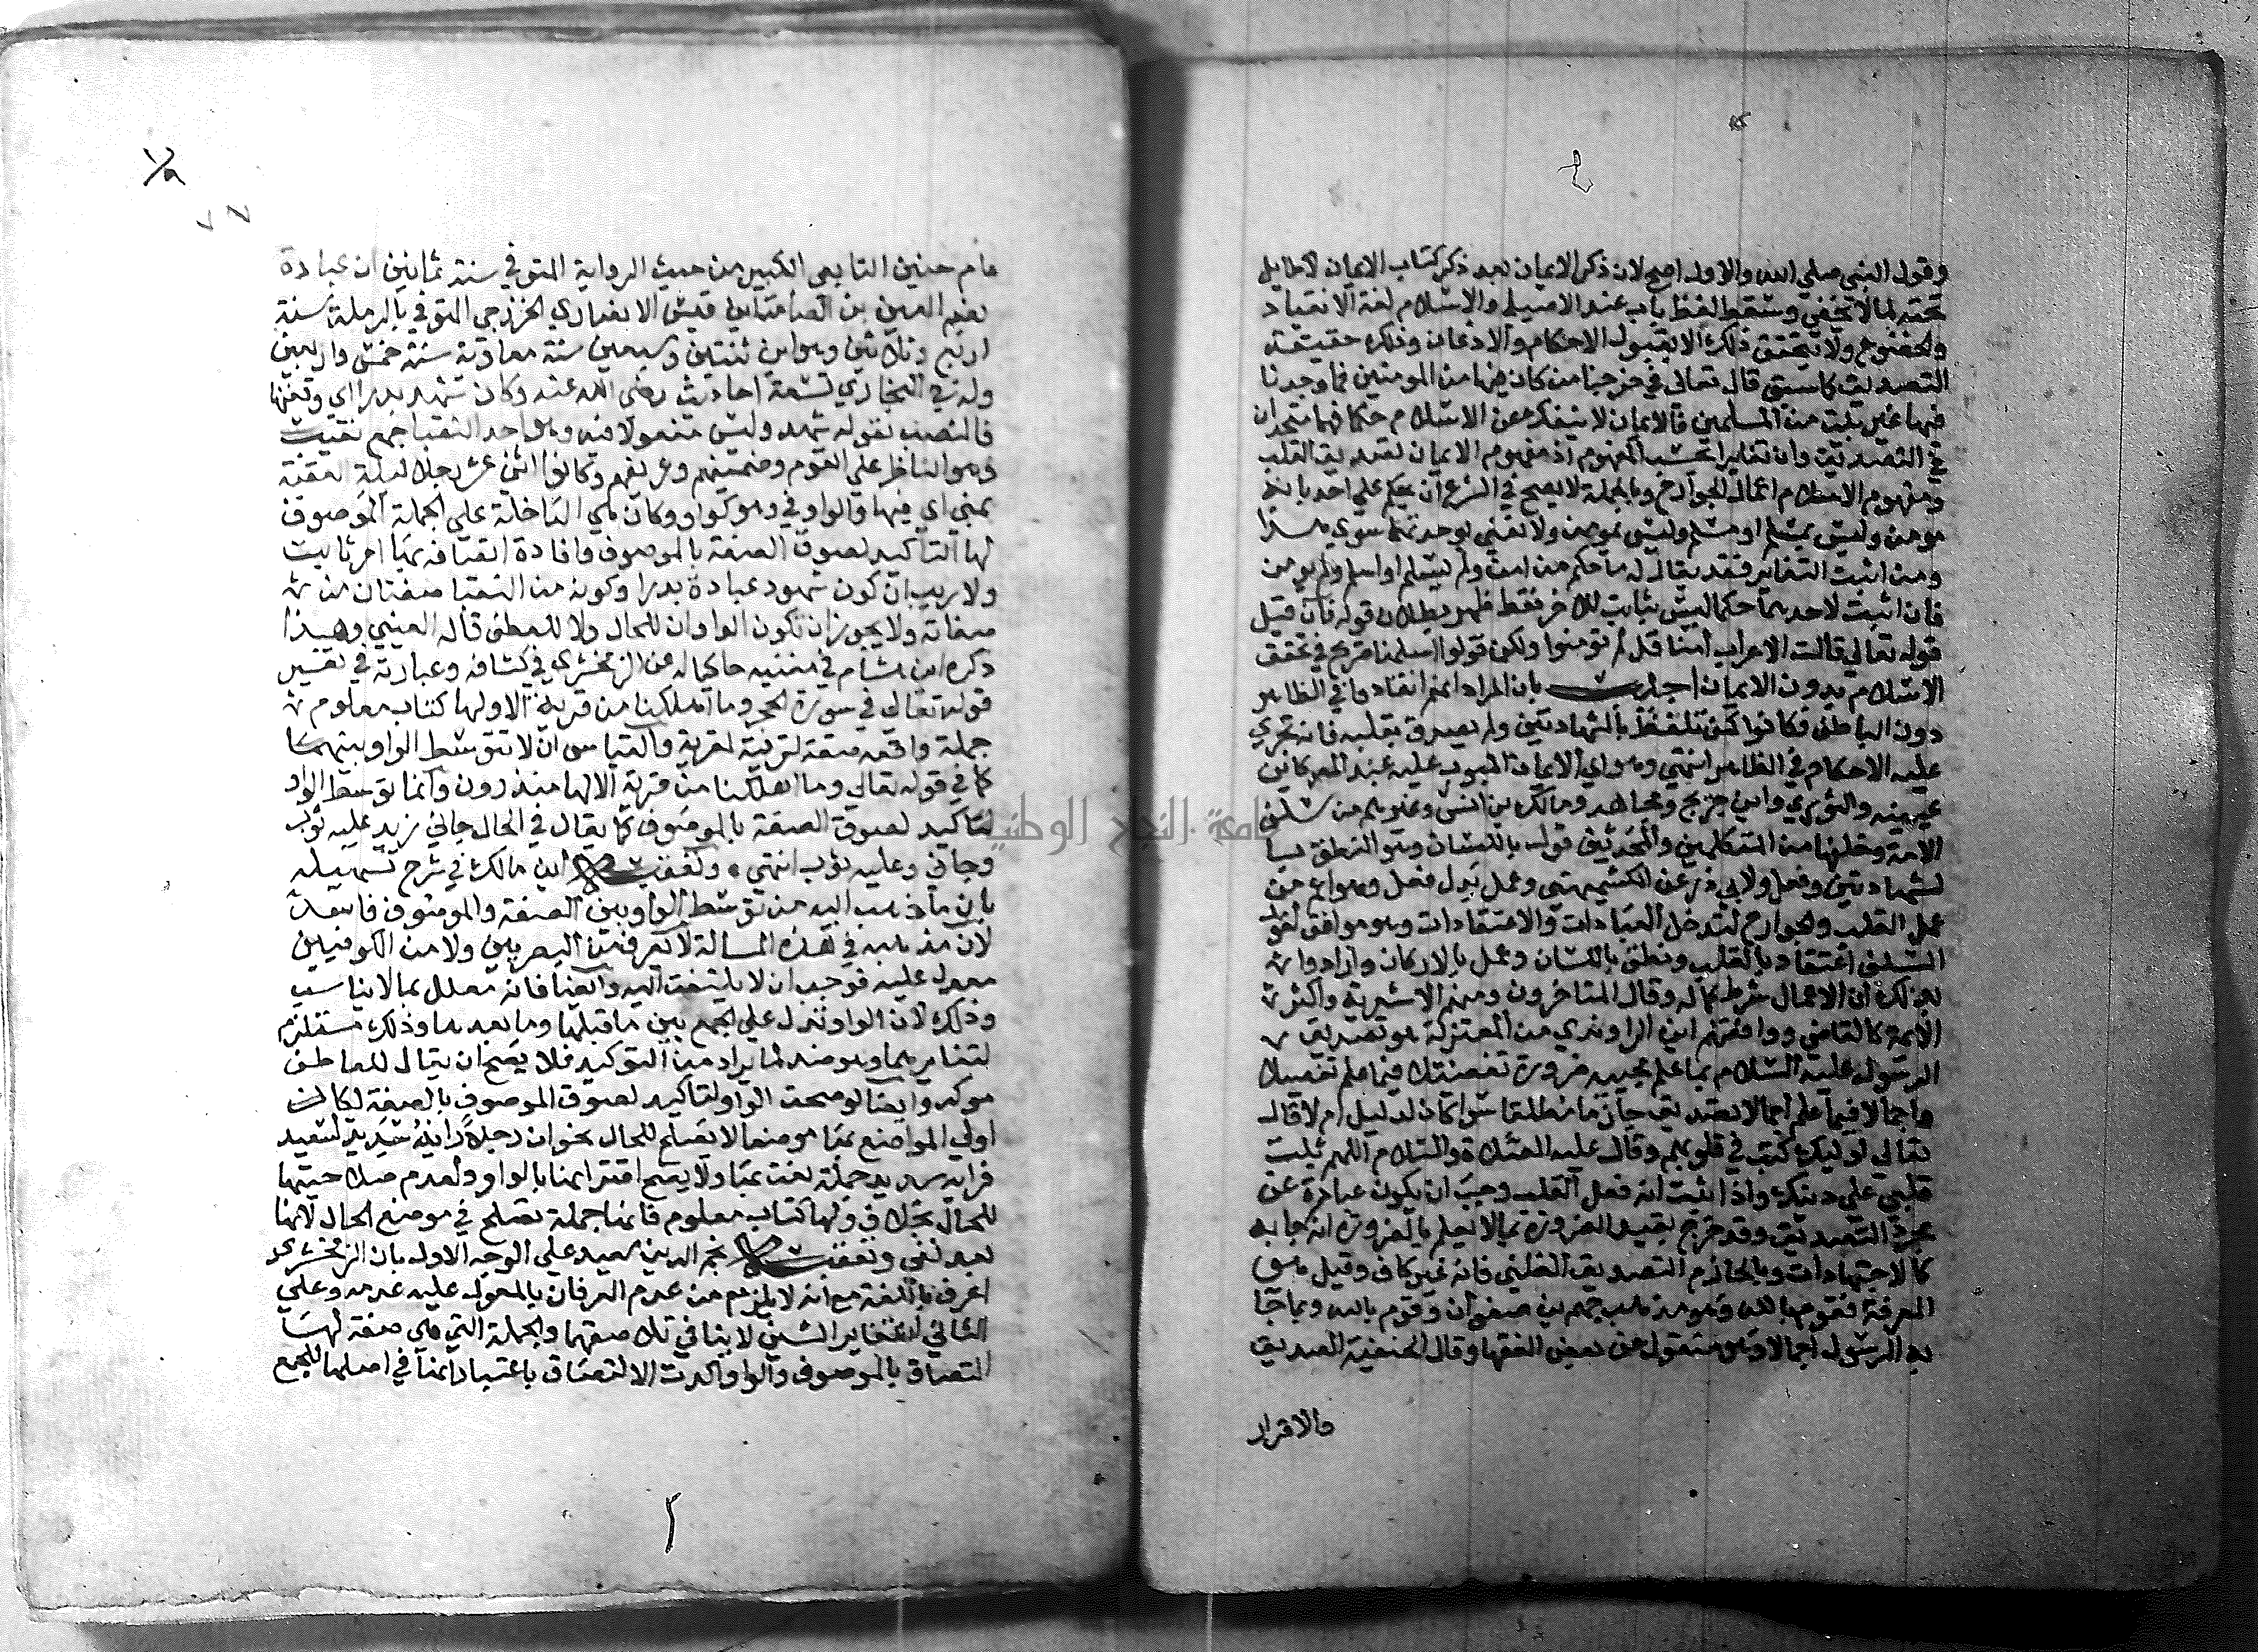 وقول النبي صلي الله والاول اصح لان ذكر الايمان بعد ذكر كتاب الايمان لا طايل
تحته لما لا يخفي وسقط لفظ باب عند الاصيلي والاسلام لغة الانقياد
والخضوع ولا يتحقق ذلك الا بقبول الاحكام والاذعان وذلك حقيقة
التصديق كما سبق قال تعالي فاخرجنا من كان فيها من المومنين فما وجدنا
فيها غير بيت من المسلمين فالايمان لا ينفك عن الاسلام حكما فهما متحدان
في التصديق وان تغايرا بحسب المفهوم اذ مفهوم الايمان تصديق القلب
ومفهوم الاسلام اعمال الجوارح وبالجملة لا يصح في الشرع ان يحكم علي احد بانه
مومن وليس بمسلم او مسلم وليس بمومن ولا نعني بوحدتهما سوي هذا
ومن اثبت التغاير فقد يقال له ما حكم من امن ولم يسلم او اسلم ولم يومن
فان اثبت لاحدهما حكما ليس بثابت للاخر فقد ظهر بطلان قوله فان قيل
قوله تعالي قالت الاعراب امنا قل لم تومنوا ولكن قولوا اسلمنا صريح في تحقق
الاسلام بدون الايمان اجيب بان المراد انهم انقادوا في الظاهر
دون الباطن فكانوا كمن تلفظ بالشهادتين ولم يصدق بقلبه فانه تجري
عليه الاحكام في الظاهر انتهي وهو اي الايمان المبوب عليه عند المص كابن
عيينه والثوري وابن جريج ومجاهد ومالك بن انس وغيرهم من سلف
الامة وخلفها من المتكلمين والمحدثين قول باللسان وهو النطق
بالشهادتين وفعل ولابي ذر عن الكشميهني وعمل بدل فعل وهو اعم من
عمل القلب والجوارح لتدخل العبادات والاعتقادات وهو موافق لقول
السلف اعتقاد بالقلب ونطق باللسان وعمل بالاركان وارادوا
بذلك ان الاعمال شرط كماله وقال المتاخرون ومنهم الاشعرية واكثر
الايمة كالقاضي ووافقهم ابن الراوندي من المعتزلة هو تصديق
الرسول عليه السلام بما علم مجييه به ضرورة تفصيلا فيما علم تفصيلا
واجمالا فيما علم اجمالا تصديقا جازما مطلقا سوا كان لدليل ام لا قال
تعالي اوليك كتب في قلوبهم وقال عليه الصلاة والسلام اللهم ثبت
قلبي علي دينك واذا ثبت انه فعل القلب وجب ان يكون عبارة عن
مجرد التصديق وقد خرج بقيد الضرورة ما لا يعلم بالضرورة انه جا به
كالاجتهادات وبالجازم التصديق الظني فانه غير كاف وقيل هو
المعرفة فقوم بالله وهو مذهب جهم بن صفوان وقوم بالله وبما جا
به الرسول اجمالا وهو منقول عن بعض الفقها وقال الحنفية التصديق
والاقرار
التابعي الكبير من حيث الرواية المتوفي سنة ثمانين ان عبادة
بضم العين بن الصامت ابن قيس الانصاري الخزرجي المتوفي بالرملة سنة
اربع وثلاثين وهو ابن ثنتين وسبعين سنة معاوية سنة خمس واربعين
وله في البخاري تسعة احاديث رضي الله عنه وكان شهد بدرا اي وقعتها
فالنصب بقوله شهد وليس مفعولا فيه وهو احد النقبا جمع نقيب
وهو الناظر علي القوم وضمينهم وعريفهم وكانوا اثني عشر رجلا ليلة العقبة
بمني اي فيها والواو في وهو كواو وكان هي الداخلة علي الجملة الموصوف
لها التاكيد لصوق الصفة بالموصوف وافادة اتصافه بها امر ثابت
ولا ريب ان كون شهود عبادة بدرا وكونه من النقبا صفتان من
صفاته ولا يجوز ان تكون الواوان للحال ولا للعطف قاله العيني وهذا
ذكره ابن هشام في مغنيه حاكيا له عن الزمخشري في كشافه وعبارته في تفسير
قوله تعالي في سورة الحجر وما اهلكنا من قرية الا ولها كتاب معلوم
جملة واقعة صفة لقرية والقياس ان لا تتوسط الواو بينهما
كما في قوله تعالي وما اهلكنا من قرية الا لها منذرون وانما توسط الواو
لتاكيد لصوق الصفة بالموصوف كما يقال في الحال جاني زيد عليه ثوب
وجاني وعليه ثوب انتهي وتعقبه ابن مالك في شرح تسهيله
بان ما ذهب اليه من توسط الواو بين الصفة والموصوف فاسد
لان مذهبه في هذه المسالة لا يعرف من البصريين ولا من الكوفيين
معول عليه فوجب ان لا يلتفت اليه وايضا فانه معلل بما لا يناسب
وذلك لان الواو تدل علي الجمع بين ما قبلها وما بعدها وذلك مستلزم
لتغايرهما وهو ضد لما يراد من التوكيد فلا يصح ان يقال للعاطف
موكد وايضا لو صحت الواو لتاكيد لصوق الموصوف بالصفة لكان
اولي المواضع بها موضعا لا يصلح للحال نحو ان رجلا رايه سديد لسعيد
فرايه سديد جملة نعت بها ولا يصح اقترانها بالواو ولعدم صلاحيتها
للحال بخلاف ولها كتاب معلوم فانها جملة تصلح في موضع الحال لانها
بعد نفي وتعقبه نجم الدين سعيد علي الوجه الاول بان الزمخشري
اعرف باللغة مع انه لا يلزم من عدم العرفان بالمعول عليه عدمه وعلي
الثاني ان تغاير الشيين لا ينافي تلاصقهما والجملة التي هي صفة لها
التصاق بالموصوف والواو اكدت الالتصاق باعتبار انها في اصلها للجمع